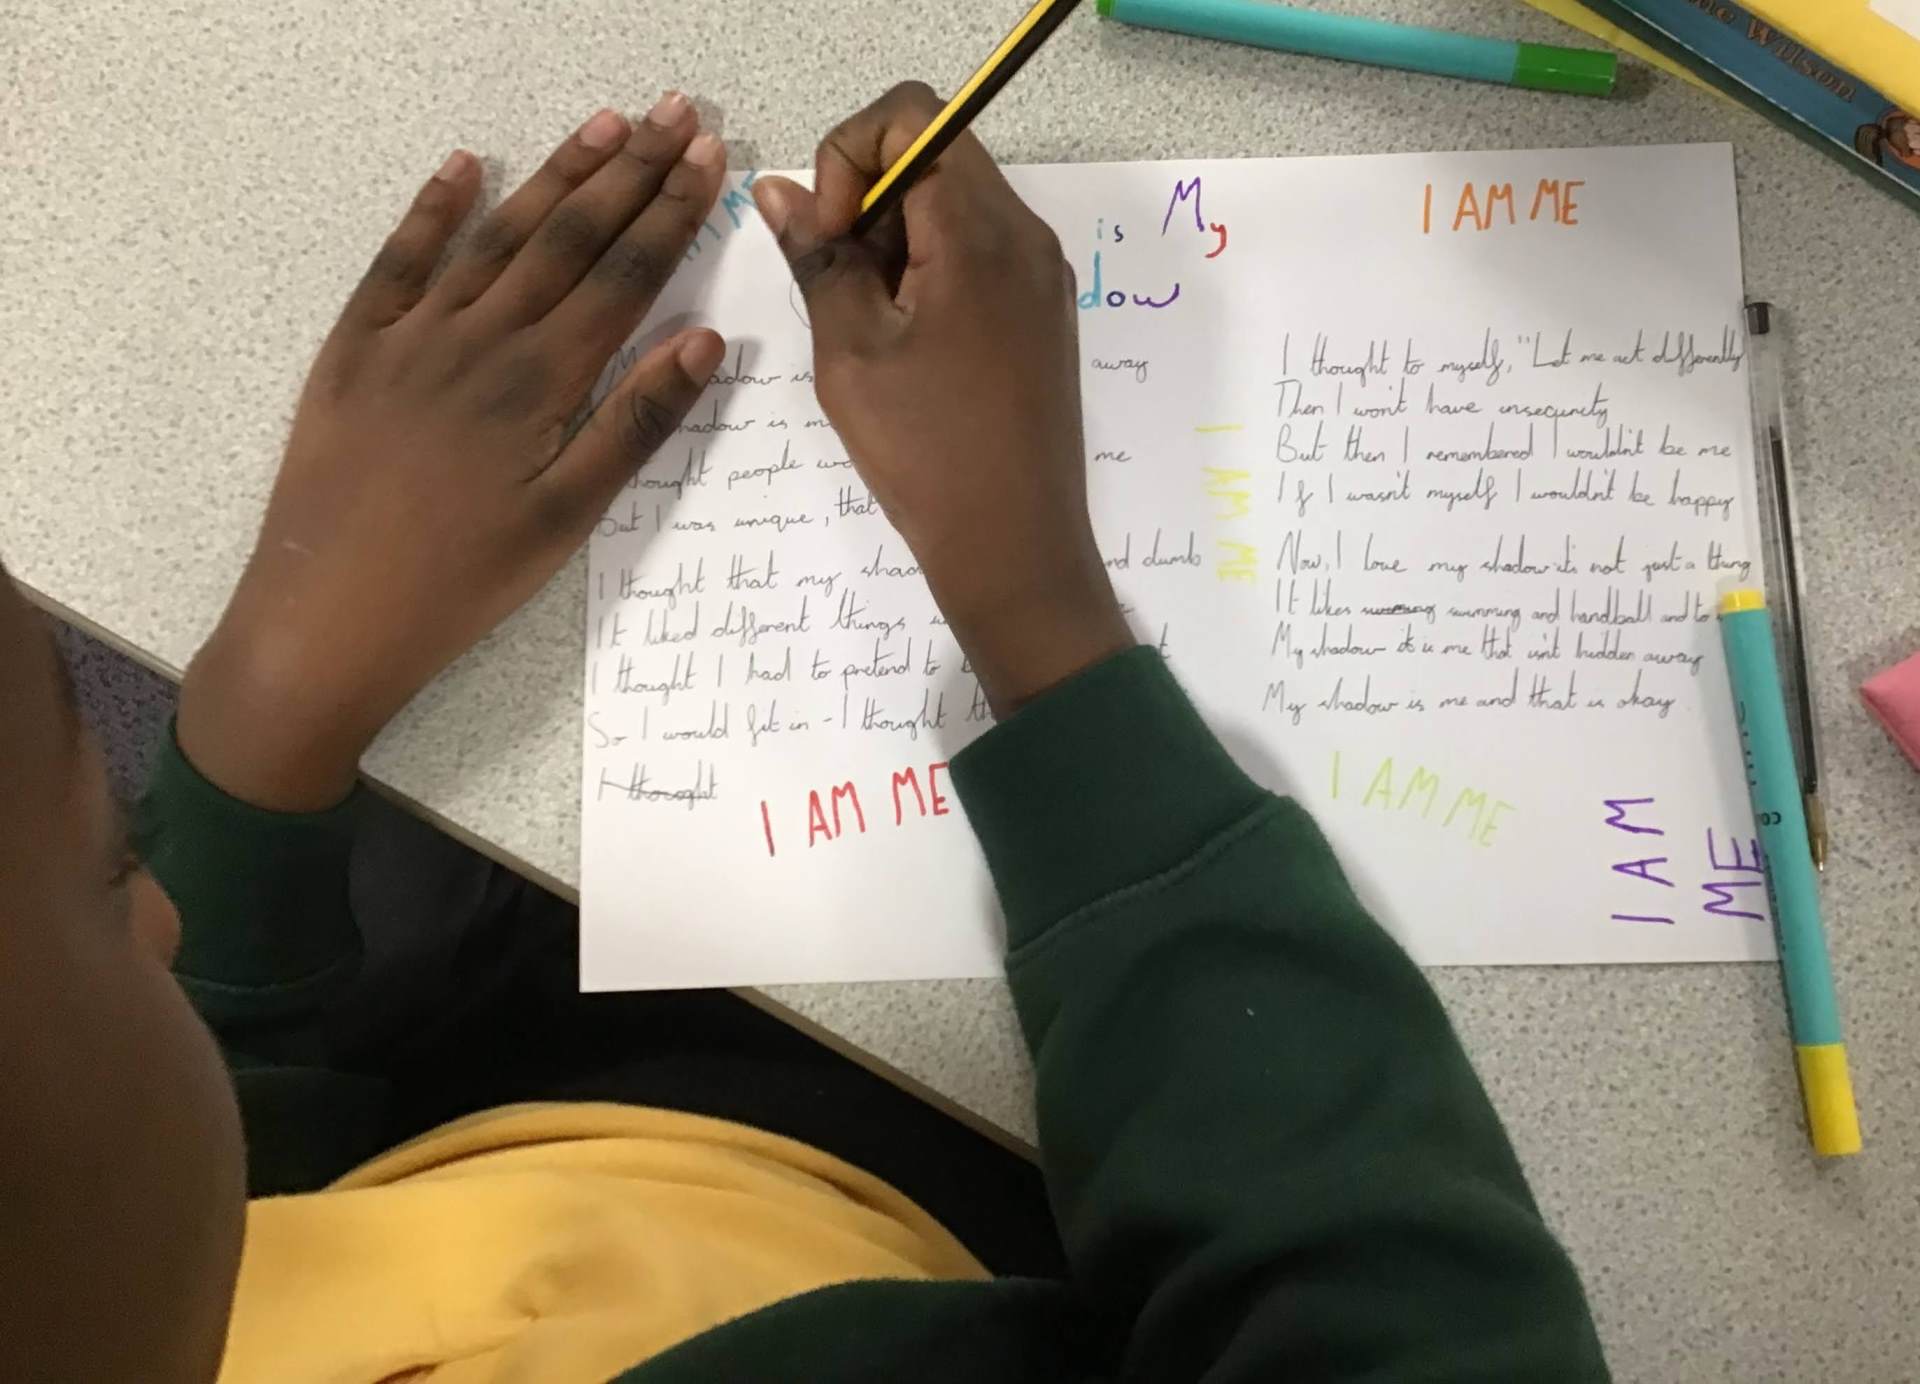 AM ME
is My
dow
I AM ME
adow is away
hadow is m
thought people wo me
But I was unique, that
I thought that my shad nd dumb
It liked different things
I thought I had to pretend to t
So I would fit in - I thought th
I thought
I AM ME
I AM ME
I thought to myself, "Let me act differently
Then I won't have insecurity
But then I remembered I wouldn't be me
If I wasn't myself I wouldn't be happy
Now, I love my shadow it's not just a thing
It likes swimming and handball and to
My shadow it is me that isn't hidden away
My shadow is me and that is okay
I AM ME
I AM
ME
Wilson